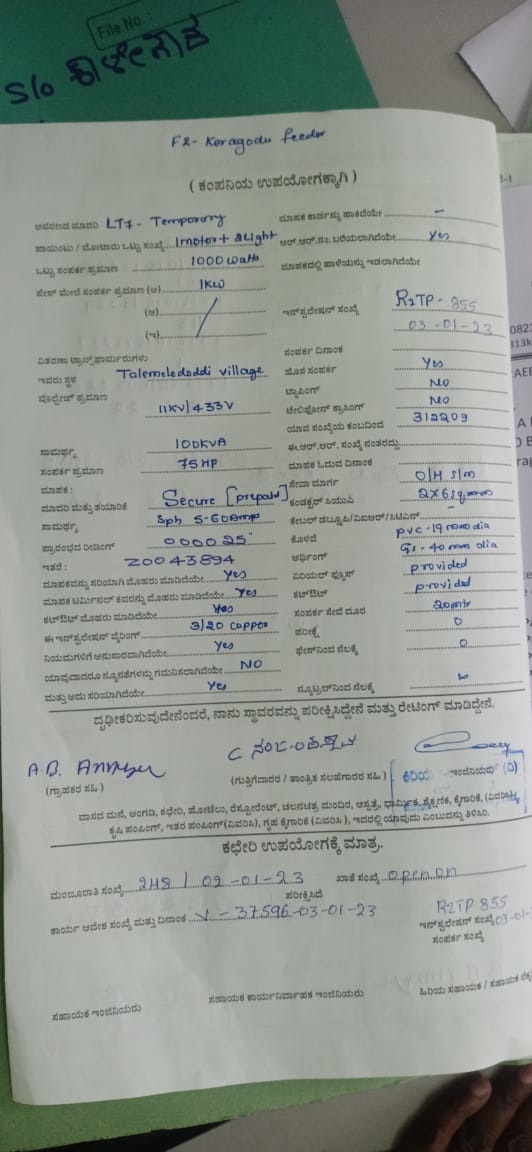 File No. :
S/o
F2- Koragodu feeder
( ಕಂಪನಿಯ ಉಪಯೋಗಕ್ಕಾಗಿ )
ಆವರಣದ ಮಾದರಿ LT7 - Temporary ಮಾಪಕ ಕಾರ್ಡನ್ನು ಹಾಕಿದೆಯೇ -
ಪಾಯಿಂಟು / ಮೋಟಾರು ಒಟ್ಟು ಸಂಖ್ಯೆ 1motor + 2light ಆರ್.ಆರ್.ನಂ. ಬರೆಯಲಾಗಿದೆಯೇ yes
ಒಟ್ಟು ಸಂಪರ್ಕ ಪ್ರಮಾಣ 1000 watts ಮಾಪಕದಲ್ಲಿ ಹಾಳೆಯನ್ನು ಇಡಲಾಗಿದೆಯೇ
ಫೇಸ್ ಮೇಲೆ ಸಂಪರ್ಕ ಪ್ರಮಾಣ (ಅ) 1KW
(ಆ) ಇನ್‌ಸ್ಟಲೇಷನ್ ಸಂಖ್ಯೆ R2TP - 855
(ಇ) 03-01-23
ವಿತರಣಾ ಟ್ರಾನ್ಸ್‌ಫಾರ್ಮರುಗಳು ಸಂಪರ್ಕ ದಿನಾಂಕ
ಇವರು ಸ್ಥಳ Talemeledoddi village ಹೊಸ ಸಂಪರ್ಕ Yes
ವೊಲ್ಟೇಜ್ ಪ್ರಮಾಣ 11KV/433V ಟ್ಯಾಪಿಂಗ್ NO
ಟೆಲಿಫೋನ್ ಕ್ರಾಸಿಂಗ್ NO
ಯಾವ ಸಂಖ್ಯೆಯ ಕಂಬದಿಂದ 312209
ಸಾಮರ್ಥ್ಯ 100KVA ಈ.ಆರ್.ಆರ್. ಸಂಖ್ಯೆ ನಂತರದ್ದು
ಸಂಪರ್ಕ ಪ್ರಮಾಣ 75HP ಮಾಪಕ ಓದುವ ದಿನಾಂಕ
ಮಾಪಕ : ಸೇವಾ ಮಾರ್ಗ O/H S/m
ಮಾದರಿ ಮತ್ತು ತಯಾರಿಕೆ Secure [prepaid] ಕಂಡಕ್ಟರ್ 2x6sqmm
ಸಾಮರ್ಥ್ಯ 5-60Amp ಕೇಬಲ್ -
ಪ್ರಾರಂಭದ ರೀಡಿಂಗ್ 000025 ಕೊಳವೆ pvc-19mm dia
ಇತರೆ : Z0043894 ಅರ್ಥಿಂಗ್ GI-40mm dia
ಮಾಪಕವನ್ನು ಸರಿಯಾಗಿ ಮೊಹರು ಮಾಡಿದೆಯೇ Yes ಏರಿಯಲ್ ಫ್ಯೂಸ್ provided
ಮಾಪಕ ಟರ್ಮಿನಲ್ ಕವರನ್ನು ಮೊಹರು ಮಾಡಿದೆಯೇ Yes ಕಟ್‌ಔಟ್ provided
ಕಟ್‌ಔಟ್ ಮೊಹರು ಮಾಡಿದೆಯೇ Yes ಸಂಪರ್ಕ ಸೇವೆ ದೂರ 20mtr
ಈ ಇನ್‌ಸ್ಟಲೇಷನ್ ವೈರಿಂಗ್ 3/20 copper ಪರೀಕ್ಷೆ 0
ನಿಯಮಗಳಿಗೆ ಅನುಸಾರವಾಗಿದೆಯೇ Yes ಫೇಸ್‌ನಿಂದ ನೆಲಕ್ಕೆ 0
ಯಾವುದಾದರೂ ನ್ಯೂನತೆಗಳನ್ನು ಗಮನಿಸಲಾಗಿದೆಯೇ NO
ಮತ್ತು ಅದು ಸರಿಯಾಗಿದೆಯೇ Yes ನ್ಯೂಟ್ರಲ್‌ನಿಂದ ನೆಲಕ್ಕೆ
ದೃಢೀಕರಿಸುವುದೇನೆಂದರೆ, ನಾನು ಸ್ಥಾವರವನ್ನು ಪರೀಕ್ಷಿಸಿದ್ದೇನೆ ಮತ್ತು ರೇಟಿಂಗ್ ಮಾಡಿದ್ದೇನೆ.
(ಗ್ರಾಹಕರ ಸಹಿ ) (ಗುತ್ತಿಗೆದಾರರ / ತಾಂತ್ರಿಕ ಸಲಹೆಗಾರರ ಸಹಿ ) ಕಿರಿಯ ಇಂಜಿನಿಯರು (ವಿ)
ವಾಸದ ಮನೆ, ಅಂಗಡಿ, ಕಛೇರಿ, ಹೋಟೆಲು, ರೆಸ್ಟೋರೆಂಟ್, ಚಲನಚಿತ್ರ ಮಂದಿರ, ಆಸ್ಪತ್ರೆ, ಧಾರ್ಮಿಕ, ಶೈಕ್ಷಣಿಕ, ಕೈಗಾರಿಕೆ, (ವಿವರಿಸಿ)
ಕೃಷಿ ಪಂಪಿಂಗ್, ಇತರ ಪಂಪಿಂಗ್(ವಿವರಿಸಿ), ಗೃಹ ಕೈಗಾರಿಕೆ (ವಿವರಿಸಿ ), ಇದರಲ್ಲಿ ಯಾವುದು ಎಂಬುದನ್ನು ತಿಳಿಸಿರಿ.
ಕಛೇರಿ ಉಪಯೋಗಕ್ಕೆ ಮಾತ್ರ.
ಮಂಜೂರಾತಿ ಸಂಖ್ಯೆ 248 / 02-01-23 ಖಾತೆ ಸಂಖ್ಯೆ open on
ಪರೀಕ್ಷಿಸಿದೆ
ಕಾರ್ಯ ಆದೇಶ ಸಂಖ್ಯೆ ಮತ್ತು ದಿನಾಂಕ V-37596-03-01-23 R2TP 855
ಇನ್‌ಸ್ಟಲೇಷನ್ ಸಂಖ್ಯೆ 03-01-
ಸಂಪರ್ಕ ಸಂಖ್ಯೆ
ಸಹಾಯಕ ಇಂಜಿನಿಯರು ಸಹಾಯಕ ಕಾರ್ಯನಿರ್ವಾಹಕ ಇಂಜಿನಿಯರು ಹಿರಿಯ ಸಹಾಯಕ / ಸಹಾಯಕ